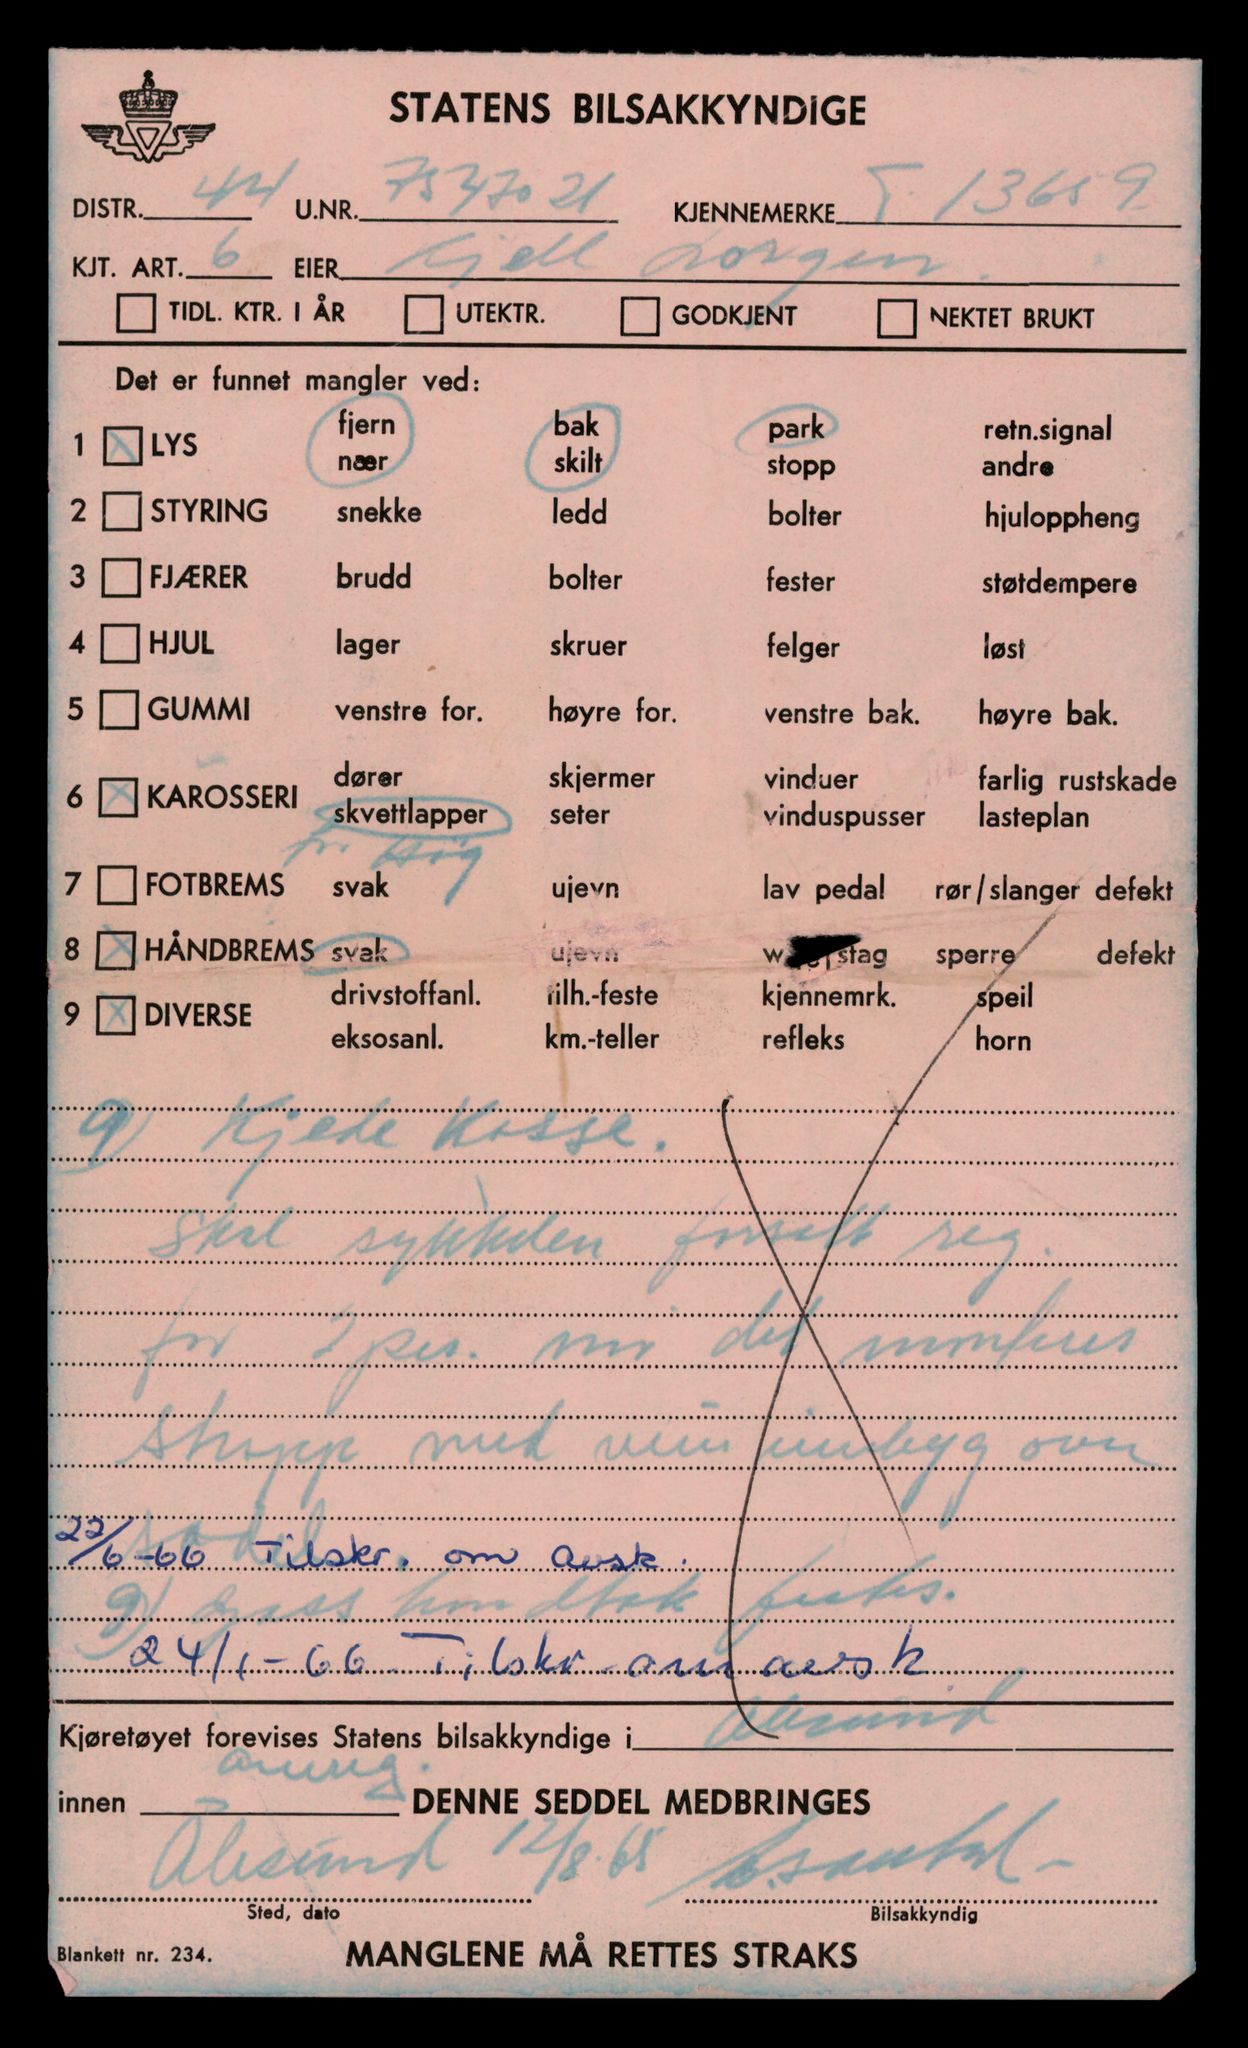 STATENS BILSAKKYNDIGE
DISTR. 44 U.NR. 7537021 KJENNEMERKE T. 13659
KJT. ART. 6 EIER Kjell
TIDL. KTR. I ÅR UTEKTR. GODKJENT NEKTET BRUKT
Det er funnet mangler ved:
fjern bak park retn.signal
1 LYS
nær skilt stopp andre
2 STYRING snekke ledd bolter hjuloppheng
3 FJÆRER brudd bolter fester støtdempere
4 HJUL lager skruer felger løst
5 GUMMI venstre for. høyre for. venstre bak. høyre bak.
dører skjermer vinduer farlig rustskade
6 KAROSSERI
skvettlapper seter vinduspusser lasteplan
7 FOTBREMS svak ujevn lav pedal rør/slanger defekt
8 HÅNDBREMS svak ujevn stag sperre defekt
drivstoffanl. tilh.-feste kjennemrk. speil
9 DIVERSE
eksosanl. km.-teller refleks horn
9) Kjede Kasse.
Skal sykkelen forsatt reg.
for 2 pers. må det monteres
stropp med over
sadel
22/6-66 Tilskr. om avsk.
9) gass håndtak festes.
24/1-66 Tilskr om avsk
Kjøretøyet forevises Statens bilsakkyndige i Ålesund
omreg.
innen DENNE SEDDEL MEDBRINGES
Ålesund 12/8-65
Sted, dato Bilsakkyndig
Blankett nr. 234. MANGLENE MÅ RETTES STRAKS